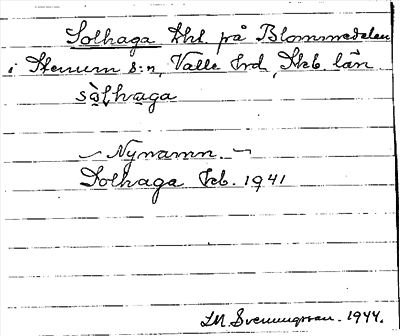 Solhaga lht. på Blommedalen
i Stenum s:n, Valle hrd, Skb. län
sòlhaga
~ Nynamn. ~
Solhaga Jrb. 1941
LM Svenungsson. 1944.